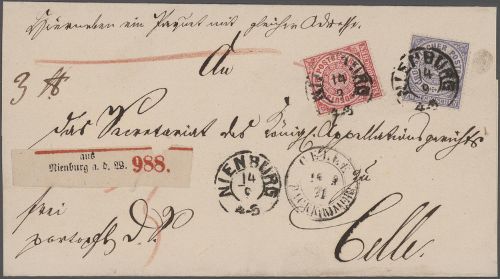 Hierneben ein Paquet mit gleicher Adresse.
An
3 ℔
das Secretariat des Königl. Appellationsgerichts
zu
Celle.
aus
Nienburg a. d. W. 988.
frei
portopfl. D. S.
NIENBURG
14
9
NIENBURG
14
9
4-5
NIENBURG
14
9
4-5
CELLE
14 9
71